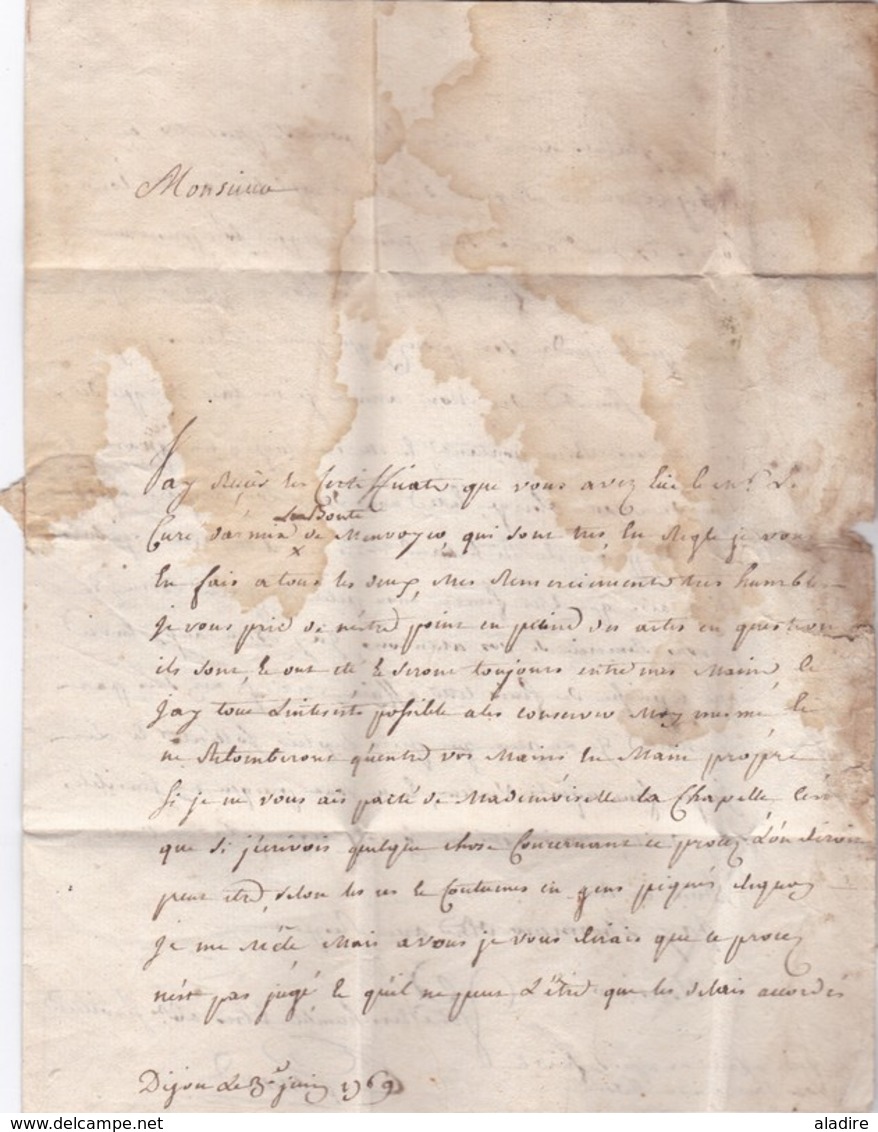 Monsieur
J'ay Reçus les Certifficats que vous avez eüe le Mr. Le
La Bonté
Curé de Menvoyer, qui sont tres En Regle je vous
En fais a tous les deux, Mes Remerciements tres humbles
je vous prie de n'être point en peine des actes en question
ils sont, & ont été & seront toujours entre mes Mains, &
J'ay tous L'interêts possible a les conserver Moy mesme &
ne Retomberont qu'entre vos Mains En Main propre
Si je ne vous ais parlé de Mademoiselle La Chapelle C'es
que si j'ecrivois quelque chose Concernant ce procez L'on diroit
peut etre, selon les us & Coutumes en gens piqués, de quoy
je me Mêle Mais a vous je vous dirais que ce procez
n'est pas jugé & qu'il ne peut L'être que les delais accordés
Dijon Le 3e juin 1769
aladire